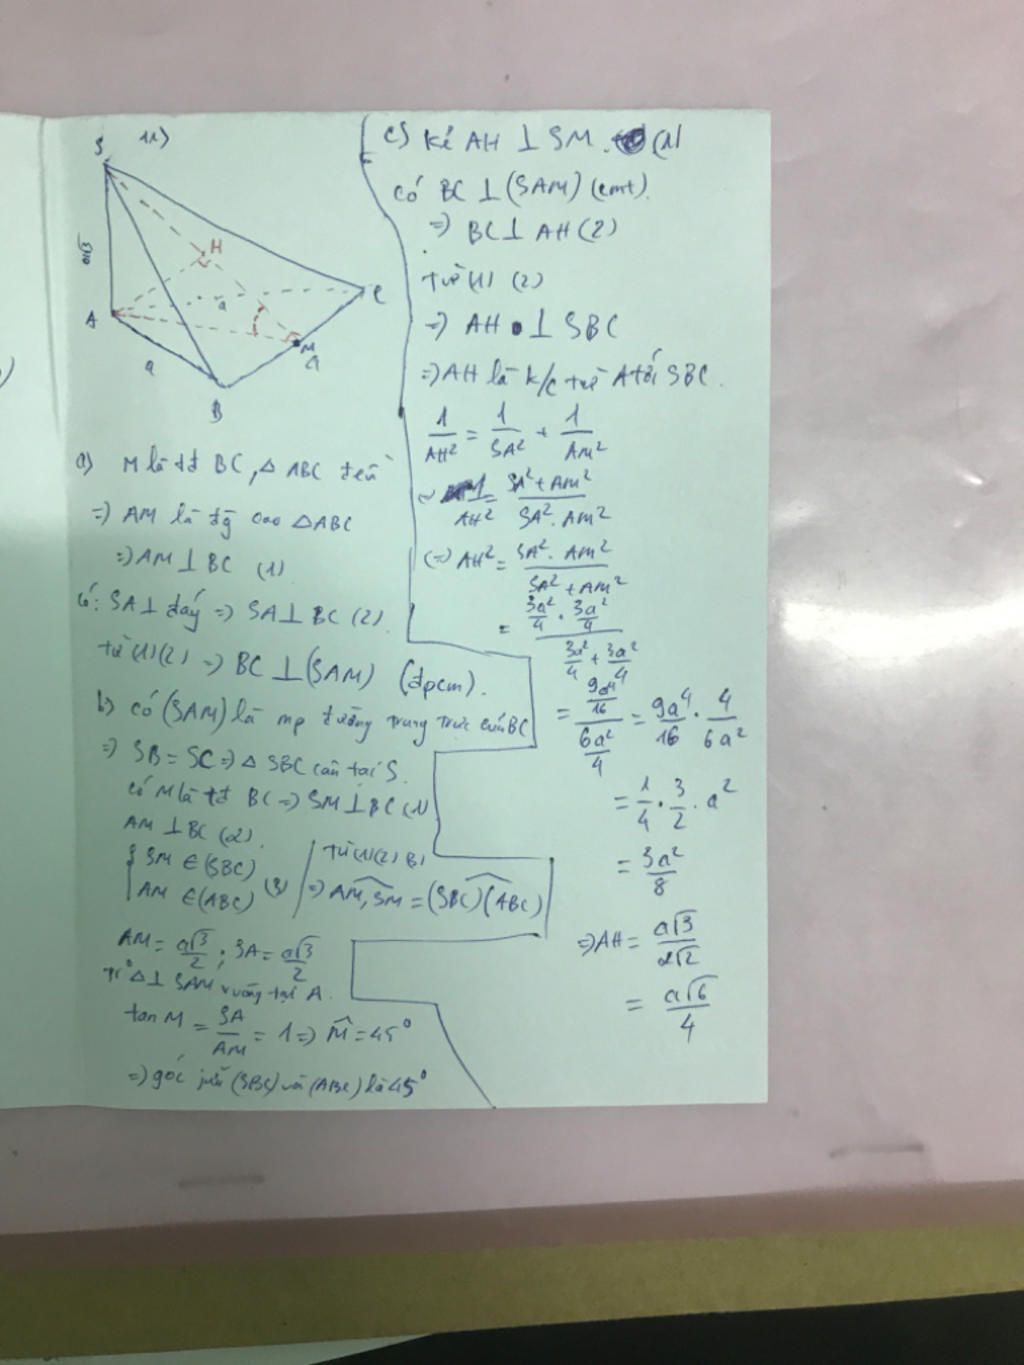 11)
S
H
A
a
C
M
a
a
B
a) M là tđ BC, △ ABC đều
=) AM là đg cao △ABC
=) AM ⊥ BC (1)
có: SA ⊥ đáy =) SA ⊥ BC (2)
từ (1)(2) =) BC ⊥ (SAM) (đpcm).
b) có (SAM) là mp đường trung trực của BC
=) SB = SC =) △ SBC cân tại S.
có M là tđ BC =) SM ⊥ BC (1)
AM ⊥ BC (2).
{ SM ∈ (SBC)
AM ∈ (ABC) (3)
Từ (1)(2)(3)
=) \widehat{AM, SM} = \widehat{(SBC)(ABC)}
AM = \frac{a\sqrt{3}}{2}; SA = \frac{a\sqrt{3}}{2}
△⊥ SAM vuông tại A.
tan M = \frac{SA}{AM} = 1 =) \widehat{M} = 45°
=) góc giữa (SBC) và (ABC) là 45°
c) Kẻ AH ⊥ SM. (1)
có BC ⊥ (SAM) (cmt).
=) BC ⊥ AH (2)
từ (1) (2)
=) AH ⊥ SBC
=) AH là k/c từ A tới SBC.
\frac{1}{AH^2} = \frac{1}{SA^2} + \frac{1}{AM^2}
\frac{1}{AH^2} = \frac{SA^2 + AM^2}{SA^2 . AM^2}
(=) AH^2 = \frac{SA^2 . AM^2}{SA^2 + AM^2}
= \frac{\frac{3a^2}{4} . \frac{3a^2}{4}}{\frac{3a^2}{4} + \frac{3a^2}{4}}
= \frac{\frac{9a^4}{16}}{\frac{6a^2}{4}} = \frac{9a^4}{16} . \frac{4}{6a^2}
= \frac{1}{4} . \frac{3}{2} . a^2
= \frac{3a^2}{8}
=) AH = \frac{a\sqrt{3}}{2\sqrt{2}}
= \frac{a\sqrt{6}}{4}